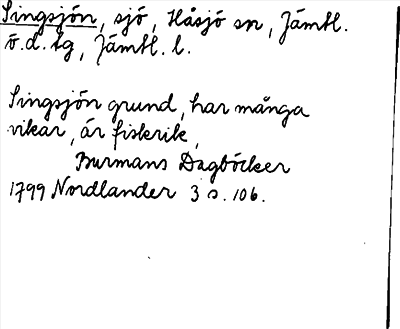 Singsjön, sjö, Håsjö sn, Jämtl.
ö.d. tg, Jämtl. l.
Singsjön grund, har många
vikar, är fiskrik,
Burmans Dagböcker
1799 Nordlander 3 s. 106.